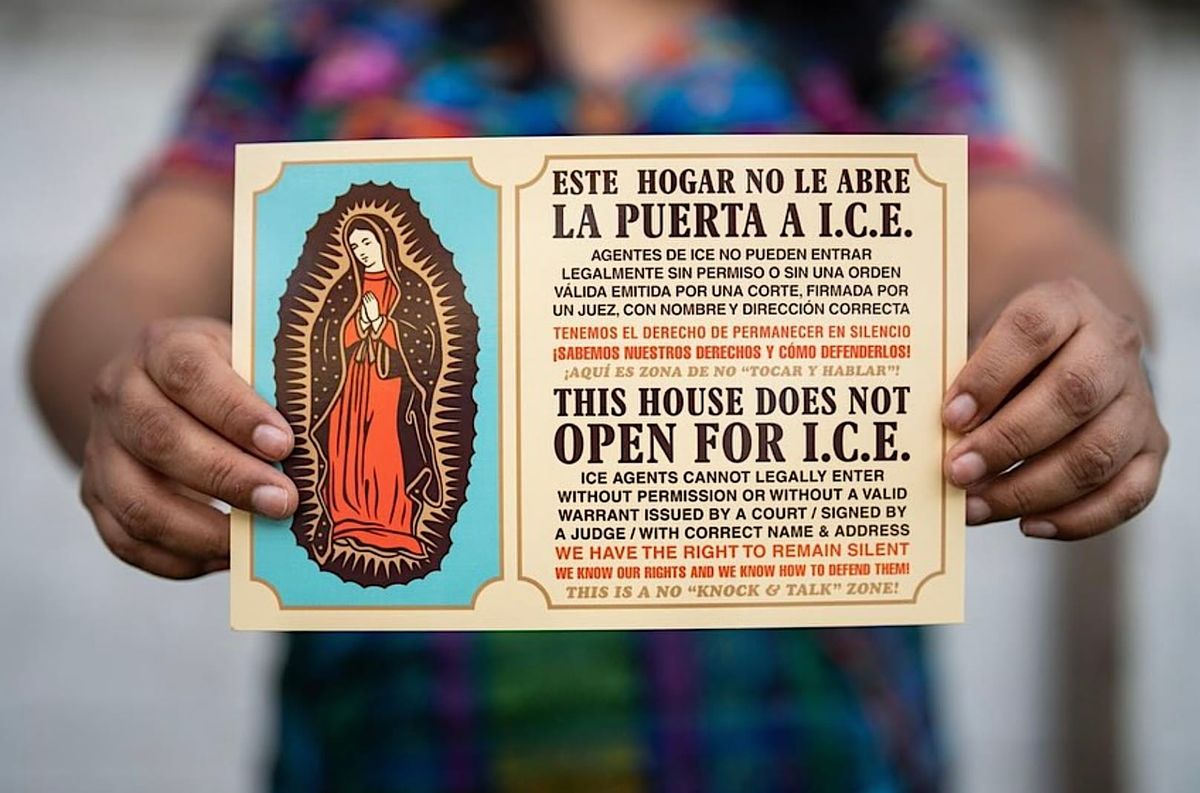 ESTE HOGAR NO LE ABRE
LA PUERTA A I.C.E.
AGENTES DE ICE NO PUEDEN ENTRAR
LEGALMENTE SIN PERMISO O SIN UNA ORDEN
VÁLIDA EMITIDA POR UNA CORTE, FIRMADA POR
UN JUEZ, CON NOMBRE Y DIRECCIÓN CORRECTA
TENEMOS EL DERECHO DE PERMANECER EN SILENCIO
¡SABEMOS NUESTROS DERECHOS Y CÓMO DEFENDERLOS!
¡AQUÍ ES ZONA DE NO "TOCAR Y HABLAR"!
THIS HOUSE DOES NOT
OPEN FOR I.C.E.
ICE AGENTS CANNOT LEGALLY ENTER
WITHOUT PERMISSION OR WITHOUT A VALID
WARRANT ISSUED BY A COURT / SIGNED BY
A JUDGE / WITH CORRECT NAME & ADDRESS
WE HAVE THE RIGHT TO REMAIN SILENT
WE KNOW OUR RIGHTS AND WE KNOW HOW TO DEFEND THEM!
THIS IS A NO "KNOCK & TALK" ZONE!